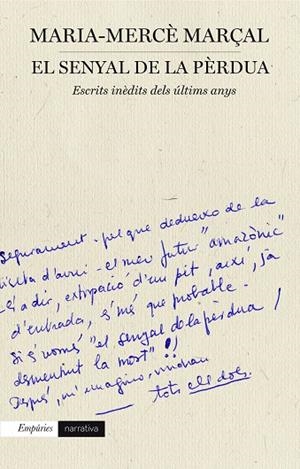 MARIA-MERCÈ MARÇAL
EL SENYAL DE LA PÈRDUA
Escrits inèdits dels últims anys
segurament - pel que dedueixo de la
visita d'avui - el meu futur "amazònic"
-és a dir, extirpació d'un pit, així, ja
d'entrada, s'més que probable.
Si és només "el senyal de la pèrdua,
desmentint la mort"!!
Després, m'imagino, vindran
tots els dols.
Empúries narrativa